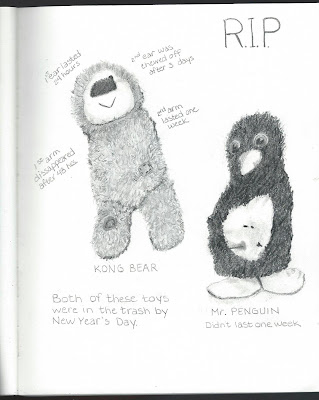 R.I.P.
1st ear lasted
24 hours
2nd ear was
chewed off
after 3 days
2nd arm
lasted one
week
1st arm
dissappeared
after 48 hrs
KONG BEAR
Both of these toys
were in the trash by
New Year's Day.
Mr. PENGUIN
Didnt last one week